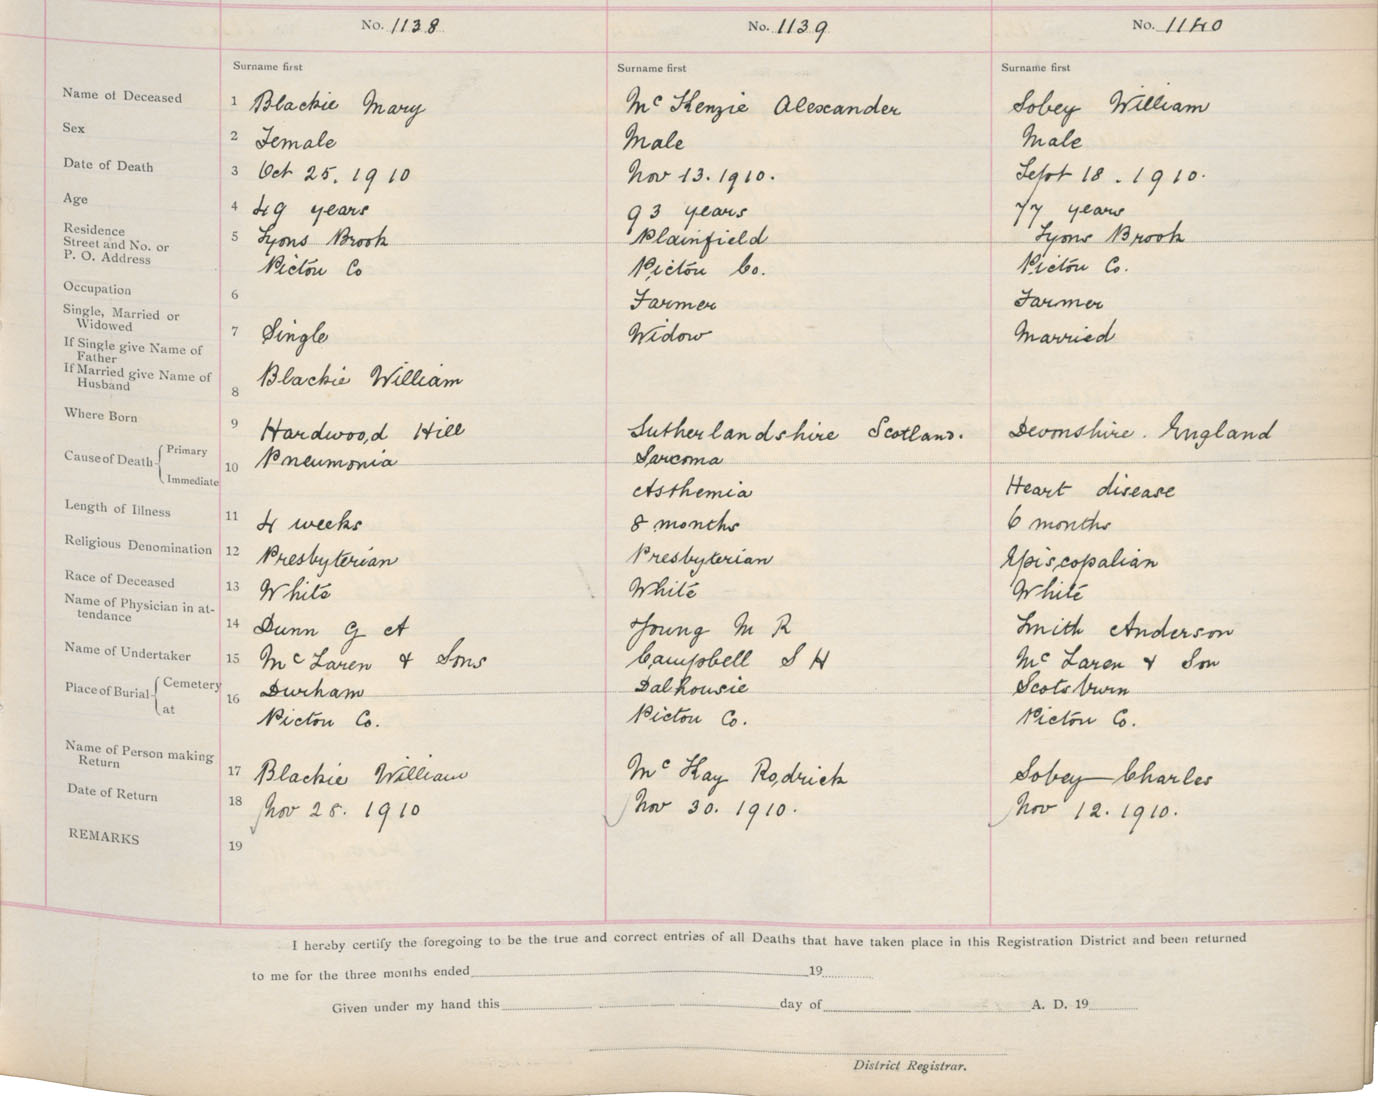 No. 1138 No. 1139 No. 1140
Surname first Surname first Surname first
Name of Deceased 1 Blackie Mary McKenzie Alexander Sobey William
Sex 2 Female Male Male
Date of Death 3 Oct 25. 1910 Nov 13. 1910. Sept 18. 1910.
Age 4 49 years 93 years 77 years
Residence
Street and No. or
P. O. Address
5 Lyons Brook Plainfield Lyons Brook
Pictou Co Pictou Co. Pictou Co.
Occupation 6 Farmer Farmer
Single, Married or
Widowed
7 Single Widow Married
If Single give Name of
Father
If Married give Name of
Husband
8 Blackie William
Where Born 9 Hardwood Hill Sutherlandshire Scotland. Devonshire. England
Cause of Death Primary 10 Pneumonia Sarcoma
Immediate Asthemia Heart disease
Length of Illness 11 4 weeks 8 months 6 months
Religious Denomination 12 Presbyterian Presbyterian Episcopalian
Race of Deceased 13 White White White
Name of Physician in at-
tendance
14 Dunn G A Young M R Smith Anderson
Name of Undertaker 15 McLaren & Sons Campbell S H McLaren & Son
Place of Burial Cemetery 16 Durham Dalhousie Scotsburn
at Pictou Co. Pictou Co. Pictou Co.
Name of Person making
Return
17 Blackie William McKay Rodrick Sobey Charles
Date of Return 18 Nov 28. 1910 Nov 30. 1910. Nov 12. 1910.
REMARKS 19
I hereby certify the foregoing to be the true and correct entries of all Deaths that have taken place in this Registration District and been returned
to me for the three months ended 19
Given under my hand this day of A. D. 19
District Registrar.